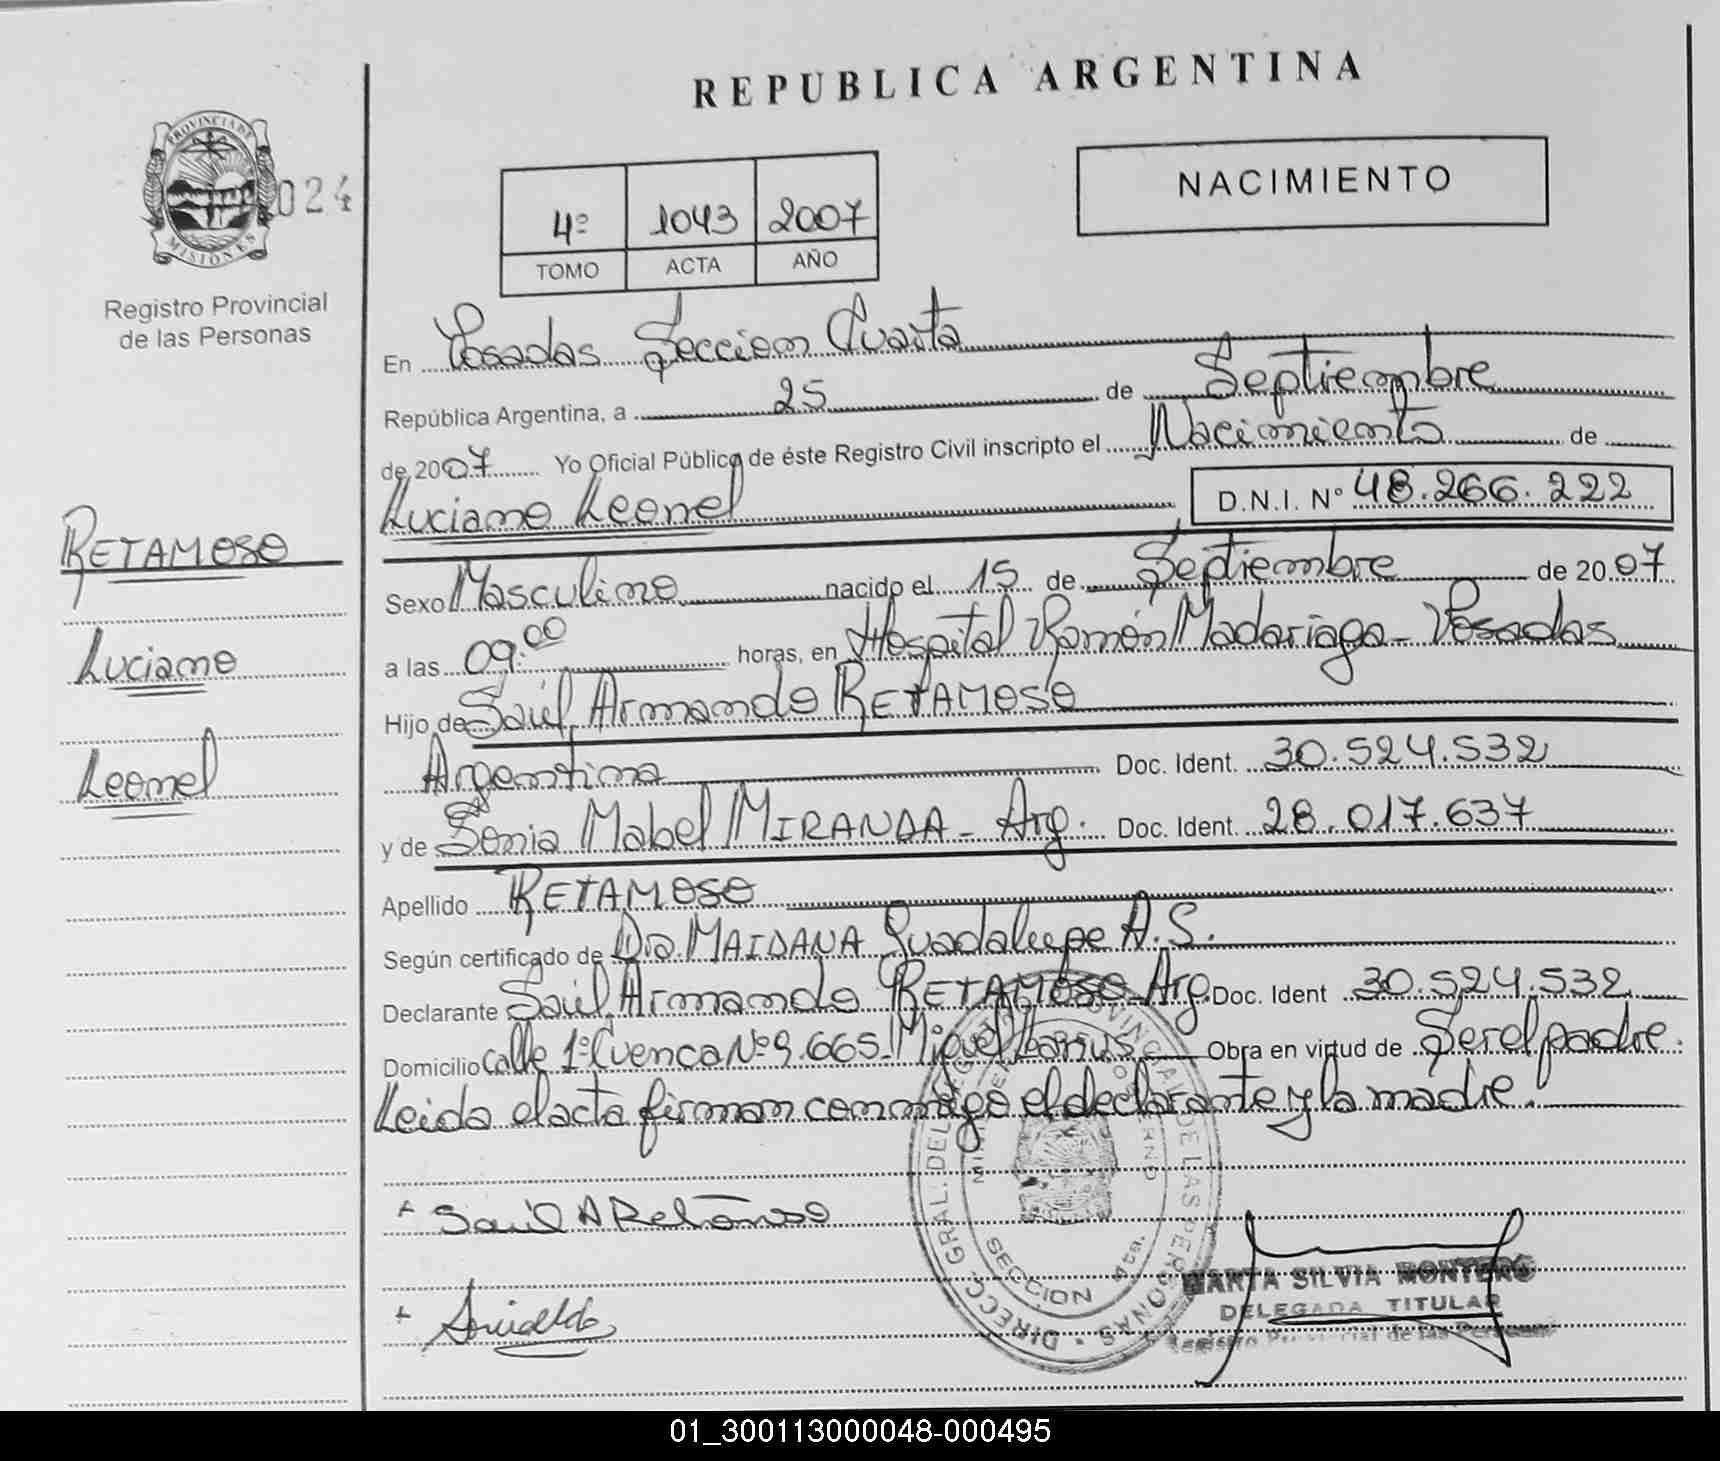 REPUBLICA ARGENTINA
PROVINCIA DE
MISIONES
024
Registro Provincial
de las Personas
4º 1043 2007
TOMO ACTA AÑO
NACIMIENTO
En Posadas Seccion Cuarta
República Argentina, a 25 de Septiembre
de 2007 Yo Oficial Público de éste Registro Civil inscripto el Nacimiento de
Luciano Leonel D.N.I. Nº 48.266.222
RETAMOSO
Luciano
Leonel
Sexo Masculino nacido el 15 de Septiembre de 2007
a las 09:00 horas, en Hospital Ramón Madariaga - Posadas
Hijo de Saúl Armando RETAMOSO
Argentina Doc. Ident. 30.524.532
y de Sonia Mabel MIRANDA - Arg. Doc. Ident. 28.017.637
Apellido RETAMOSO
Según certificado de Dra. MAIDANA Guadalupe A. S.
Declarante Saúl Armando RETAMOSO Arg. Doc. Ident 30.524.532
Domicilio Calle 1º Cuenca Nº 9.665. Miguel Obra en virtud de Ser el padre.
Leida el acta firman conmigo el declarante y la madre.
Saul A Retamoso
DIRECC. GRAL. DEL REGISTRO PROVINCIAL DE LAS PERSONAS
SECCION 4ta.
MARTA SILVIA MONTERO
DELEGADA TITULAR
Registro Provincial de las Personas
01_300113000048-000495